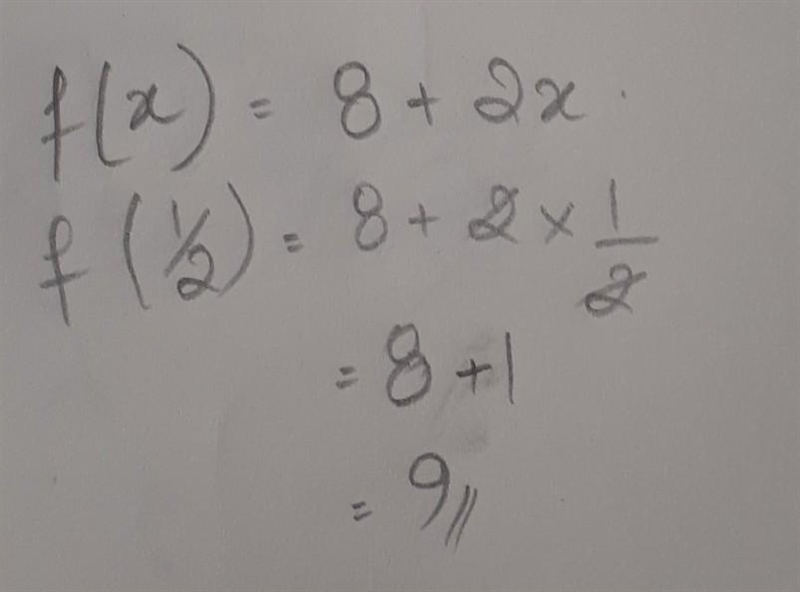 f(x) = 8 + 2x.
f(1/2) = 8 + 2 × 1/2
= 8 + 1
= 9//